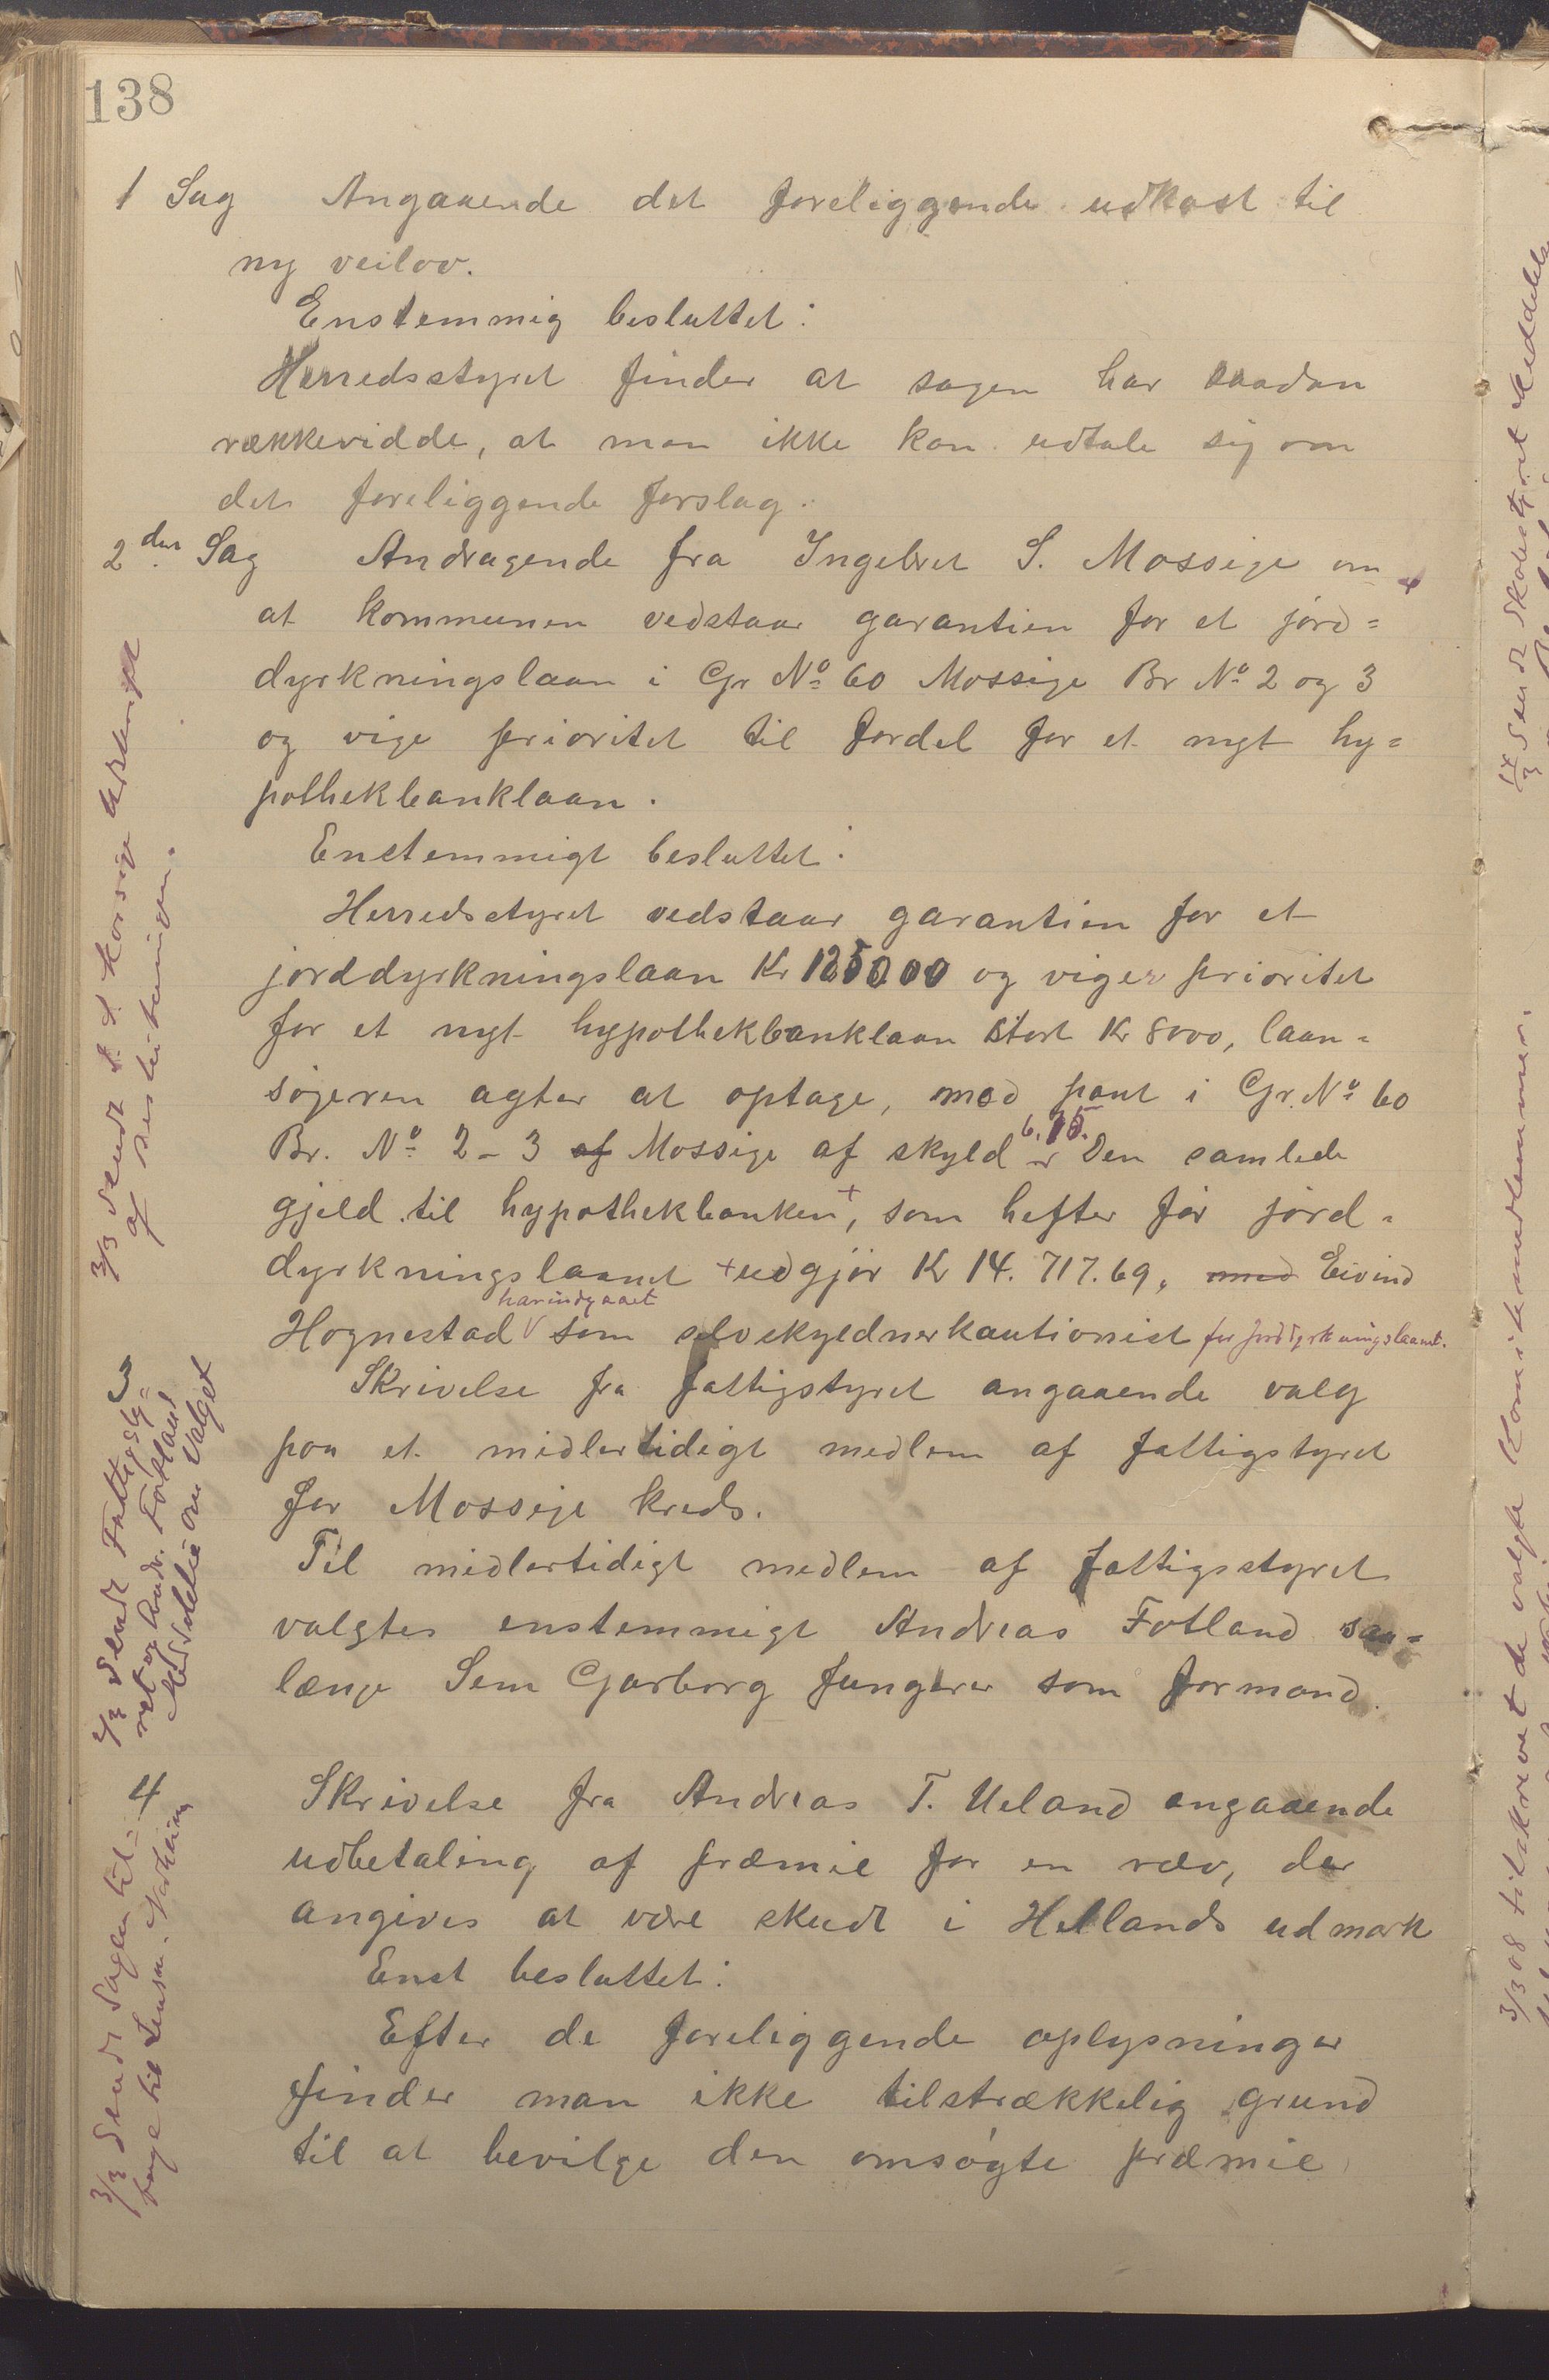 138
1 Sag Angaaende det foreliggende udkast til
ny veilov.
Enstemmig besluttet:
Herredsstyret finder at sagen har saadan
rækkevidde, at man ikke kan udtale sig om
det foreliggende forslag.
2den Sag Andragende fra Ingebret S. Mossige om
at kommunen vedstaar garantien for et jord=
dyrkningslaan i Gr No 60 Mossige Br No 2 og 3
og vige prioritet til fordel for et nyt hy=
pothekbanklaan.
Enstemmigt besluttet:
Herredsstyret vedstaar garantien for et
jorddyrkningslaan Kr 1250.00 og viger prioritet
for et nyt hypothekbanklaan stort Kr 8000, laan=
søgeren agter at optage, med pant i Gr. No 60
Br. No 2-3 af Mossige af skyld 6.15. Den samlede
gjeld til hypothekbanken +, som hefter før jord=
dyrkningslaanet + udgjør Kr 14.717.69, med Eivind
Hognestad har indgaaet som selvskyldnerkautionist for jorddyrkningslaanet.
3
Skrivelse fra fattigstyret angaaende valg
paa et midlertidigt medlem af fattigstyret
for Mossige kreds.
Til midlertidigt medlem af fattigsstyret
valgtes enstemmigt Andreas Fotland saa=
længe Sem Garborg fungerer som formand.
4
Skrivelse fra Andreas T. Ueland angaaende
udbetaling af præmie for en ræv, der
angives at være skudt i Hellands udmark
Enst besluttet:
Efter de foreliggende oplysninger
finder man ikke tilstrækkelig grund
til at bevilge den omsøgte præmie
3/3 sendt
af beslutningen.
3/3 sendt Fattigsty=
ret og Andr. Fotland
Meddelelse om valget
3/3 sendt sagen til=
bage til Lensm.
17/3 sendt skolestyret Meddelelse
3/3 08 tilskrevet de valgte Komitemedlemmer.